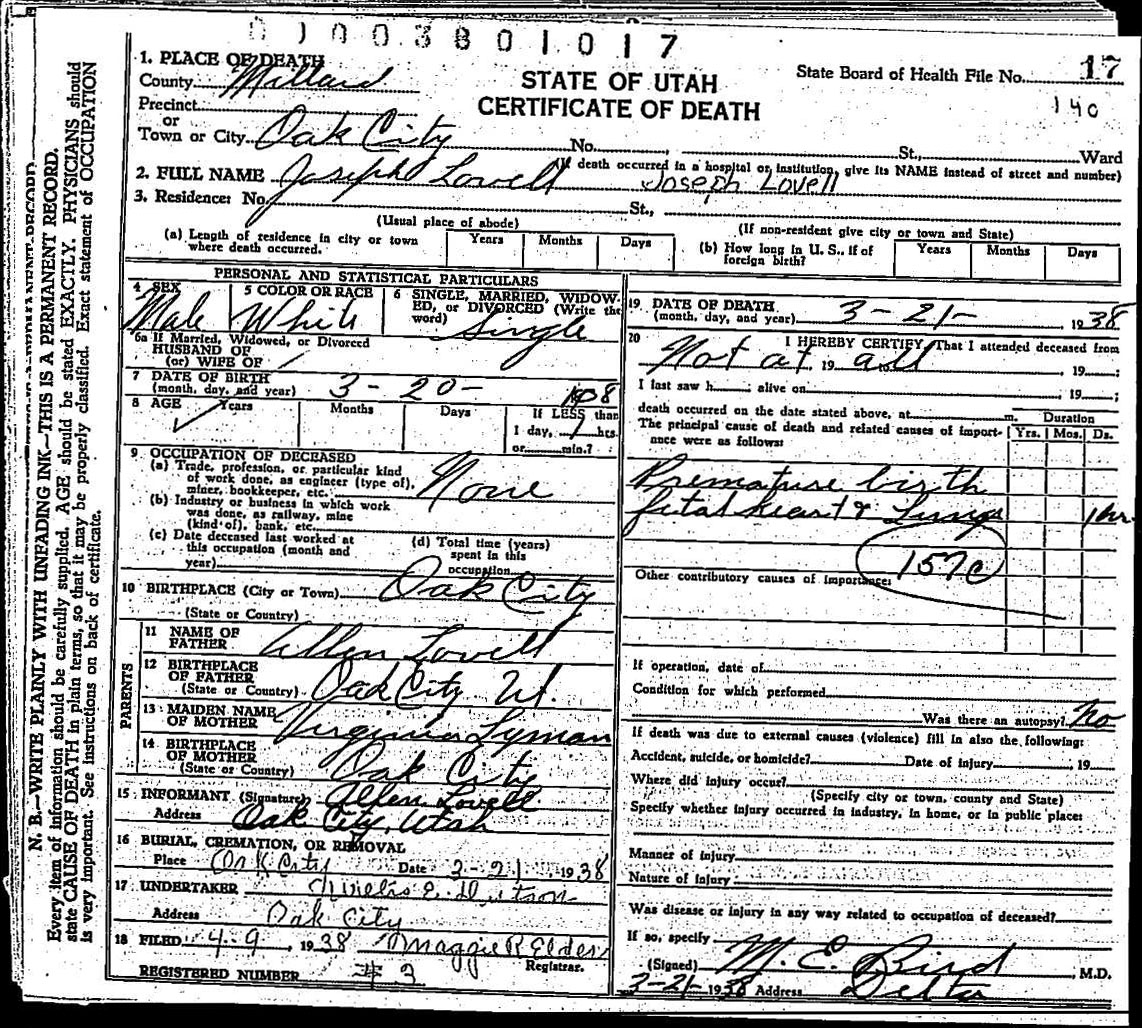 01003801017
1. PLACE OF DEATH
County Millard
STATE OF UTAH
CERTIFICATE OF DEATH
State Board of Health File No. 17
140
Precinct
or
Town or City Oak City No. St., Ward
(If death occurred in a hospital or institution, give its NAME instead of street and number)
2. FULL NAME Joseph Lovell Joseph Lovell
3. Residence: No. St.,
(Usual place of abode) (If non-resident give city or town and State)
(a) Length of residence in city or town where death occurred. Years Months Days
(b) How long in U. S., if of foreign birth? Years Months Days
PERSONAL AND STATISTICAL PARTICULARS
4 SEX Male
5 COLOR OR RACE White
6 SINGLE, MARRIED, WIDOWED, or DIVORCED (Write the word) Single
6a If Married, Widowed, or Divorced
HUSBAND OF
(or) WIFE OF
7 DATE OF BIRTH
(month, day, and year) 3-20-
8 AGE Years Months Days If LESS than
1 day, 1 hrs.
or min.?
9 OCCUPATION OF DECEASED
(a) Trade, profession, or particular kind
of work done, as engineer (type of),
miner, bookkeeper, etc. None
(b) Industry or business in which work
was done, as railway, mine
(kind of), bank, etc.
(c) Date deceased last worked at
this occupation (month and
year)
(d) Total time (years)
spent in this
occupation
10 BIRTHPLACE (City or Town) Oak City
(State or Country)
PARENTS
11 NAME OF
FATHER Allen Lovell
12 BIRTHPLACE
OF FATHER
(State or Country) Oak City Ut.
13 MAIDEN NAME
OF MOTHER Virginia Lyman
14 BIRTHPLACE
OF MOTHER
(State or Country) Oak City
15 INFORMANT (Signature) Allen Lovell
Address Oak City, Utah
16 BURIAL, CREMATION, OR REMOVAL
Place Oak City Date 3-21 1938
17 UNDERTAKER E. Dutson
Address Oak City
18 FILED 4-9, 1938 Maggie R Elder
Registrar.
REGISTERED NUMBER # 3
19 DATE OF DEATH
(month, day, and year) 3-21- 1938
20 I HEREBY CERTIFY, That I attended deceased from
Not at all, 19 19 ;
I last saw h ; alive on 19 ;
death occurred on the date stated above, at m.
The principal cause of death and related causes of importance were as follows:
Duration
Yrs. Mos. Ds.
Premature birth
fetal heart & Lungs 1 hr.
157c
Other contributory causes of importance:
If operation, date of
Condition for which performed
Was there an autopsy? No
If death was due to external causes (violence) fill in also the following:
Accident, suicide, or homicide? Date of injury 19
Where did injury occur?
(Specify city or town, county and State)
Specify whether injury occurred in industry, in home, or in public place:
Manner of injury
Nature of injury
Was disease or injury in any way related to occupation of deceased?
If so, specify
(Signed) M. E. Bird, M.D.
3-21 1938 Address Delta
N. B.—WRITE PLAINLY WITH UNFADING INK—THIS IS A PERMANENT RECORD.
Every item of information should be carefully supplied. AGE should be stated EXACTLY. PHYSICIANS should
state CAUSE OF DEATH in plain terms, so that it may be properly classified. Exact statement of OCCUPATION
is very important. See instructions on back of certificate.